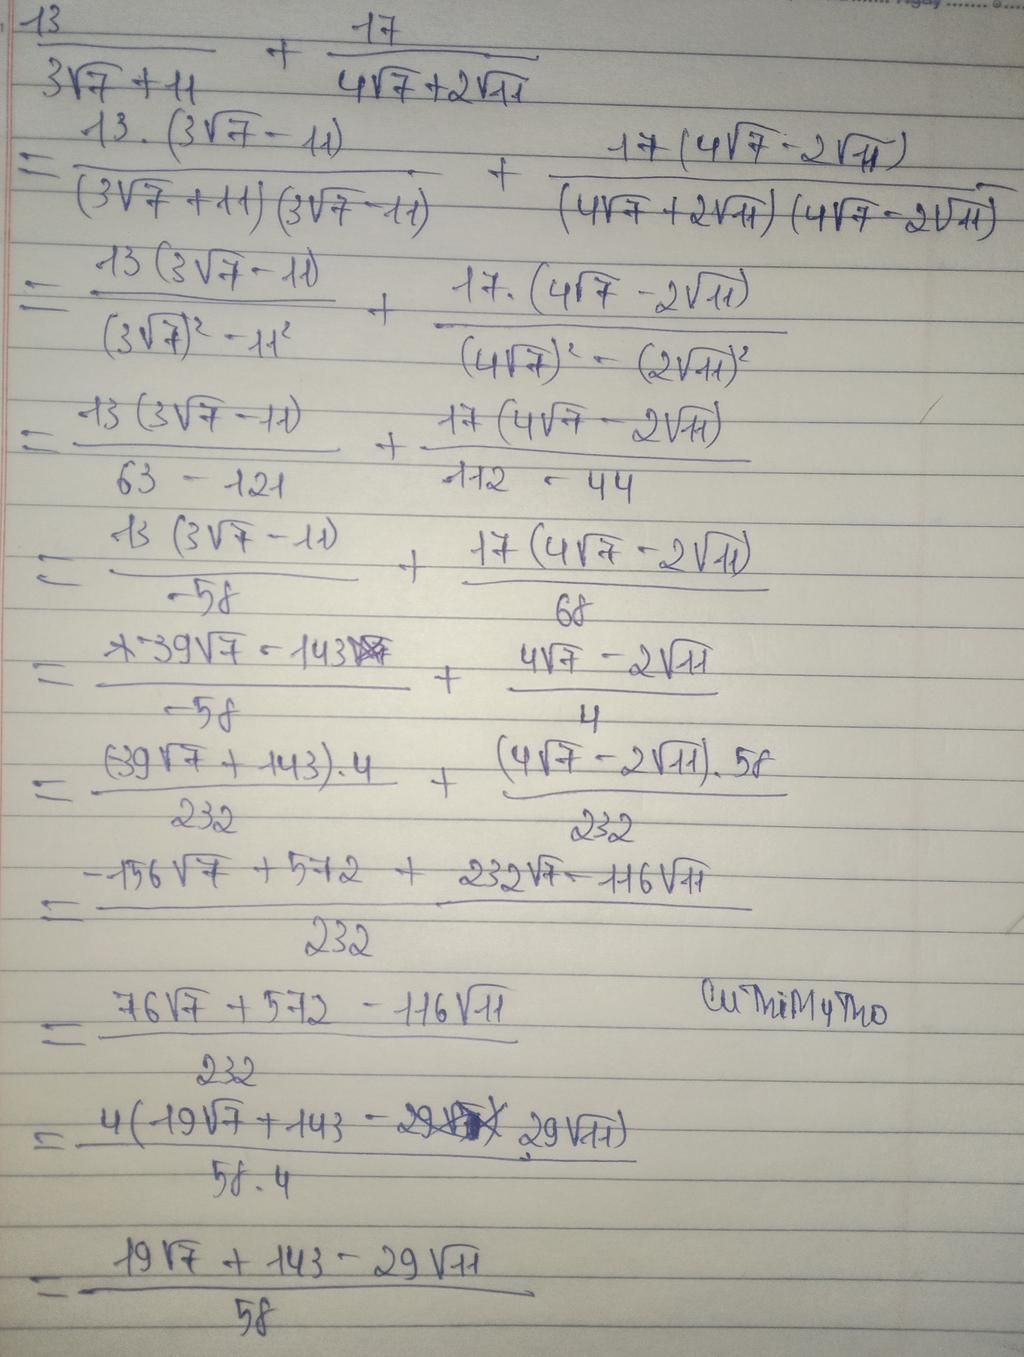 Ngày ....... 
13/(3√7 + 11) + 17/(4√7 + 2√11)
= 13.(3√7 - 11)/((3√7 + 11)(3√7 - 11)) + 17(4√7 - 2√11)/((4√7 + 2√11)(4√7 - 2√11))
= 13(3√7 - 11)/((3√7)² - 11²) + 17.(4√7 - 2√11)/((4√7)² - (2√11)²)
= 13(3√7 - 11)/(63 - 121) + 17(4√7 - 2√11)/(112 - 44)
= 13(3√7 - 11)/(-58) + 17(4√7 - 2√11)/68
= 39√7 - 143/(-58) + (4√7 - 2√11)/4
= (39√7 + 143).4/232 + (4√7 - 2√11).58/232
= (-156√7 + 572 + 232√7 - 116√11)/232
= (76√7 + 572 - 116√11)/232
CuThiMyTho
= 4(19√7 + 143 - 29√11)/(58.4)
= (19√7 + 143 - 29√11)/58